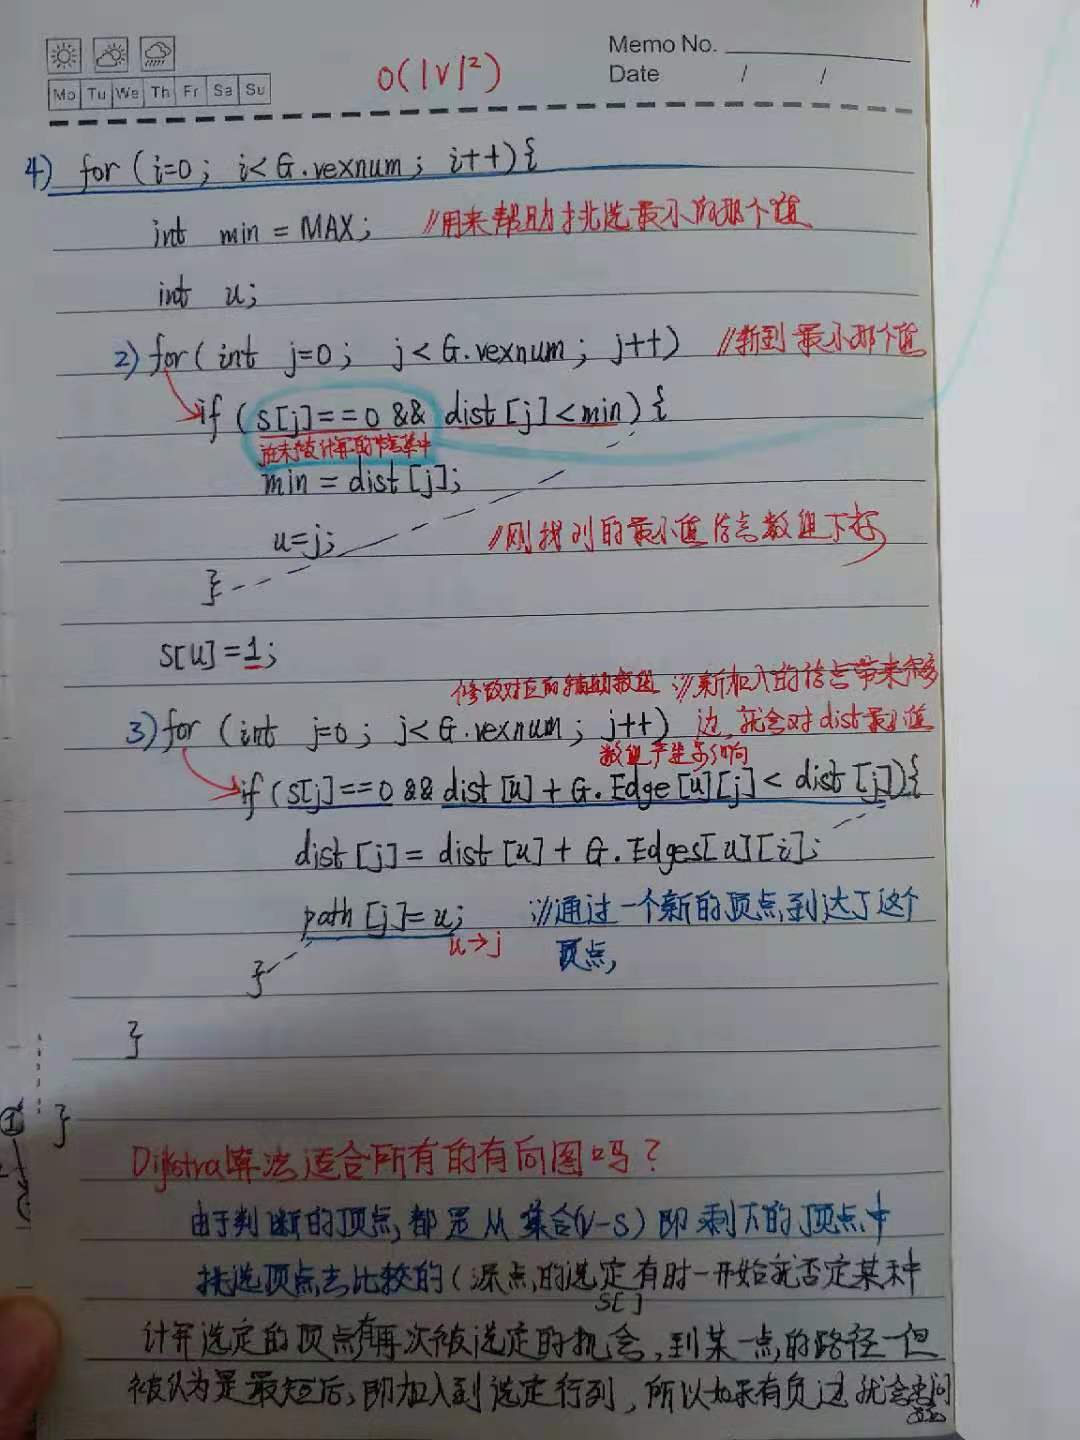 Memo No.
Date / /
Mo Tu We Th Fr Sa Su
O(|V|²)
4) for (i=0; i<G.vexnum; i++){
int min = MAX; //用来帮助挑选最小的那个值
int u;
2) for( int j=0; j<G.vexnum; j++) //到最小那个值
if (s[j]==0 && dist[j]<min){
min = dist[j];
u=j; //刚找到的最小值结点数组下标
}
s[u]=1;
修改对应的辅助数组 ://新加入的结点带来
3) for (int j=0; j<G.vexnum; j++) 边,就会对dist最小值
数组产生影响
if (s[j]==0 && dist[u]+G.Edge[u][j]<dist[j]){
dist[j]= dist[u]+G.Edges[u][i];
path[j]=u; ://通过一个新的顶点到达了这个
u→j 顶点,
}
}
①
}
Dijkstra算法适合所有的有向图吗?
由于判断的顶点,都是从集合(V-S)即剩下的顶点中
挑选顶点去比较的(源点的选定有时一开始就否定某种
S[]
计算选定的顶点有再次被选定的机会,到某一点的路径一但
被认为是最短后,即加入到选定行列,所以如果有负边就会出问
题